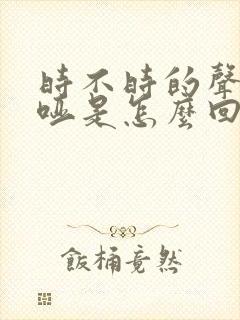 時不時的聲
啞是怎麼回
飯桶竟然